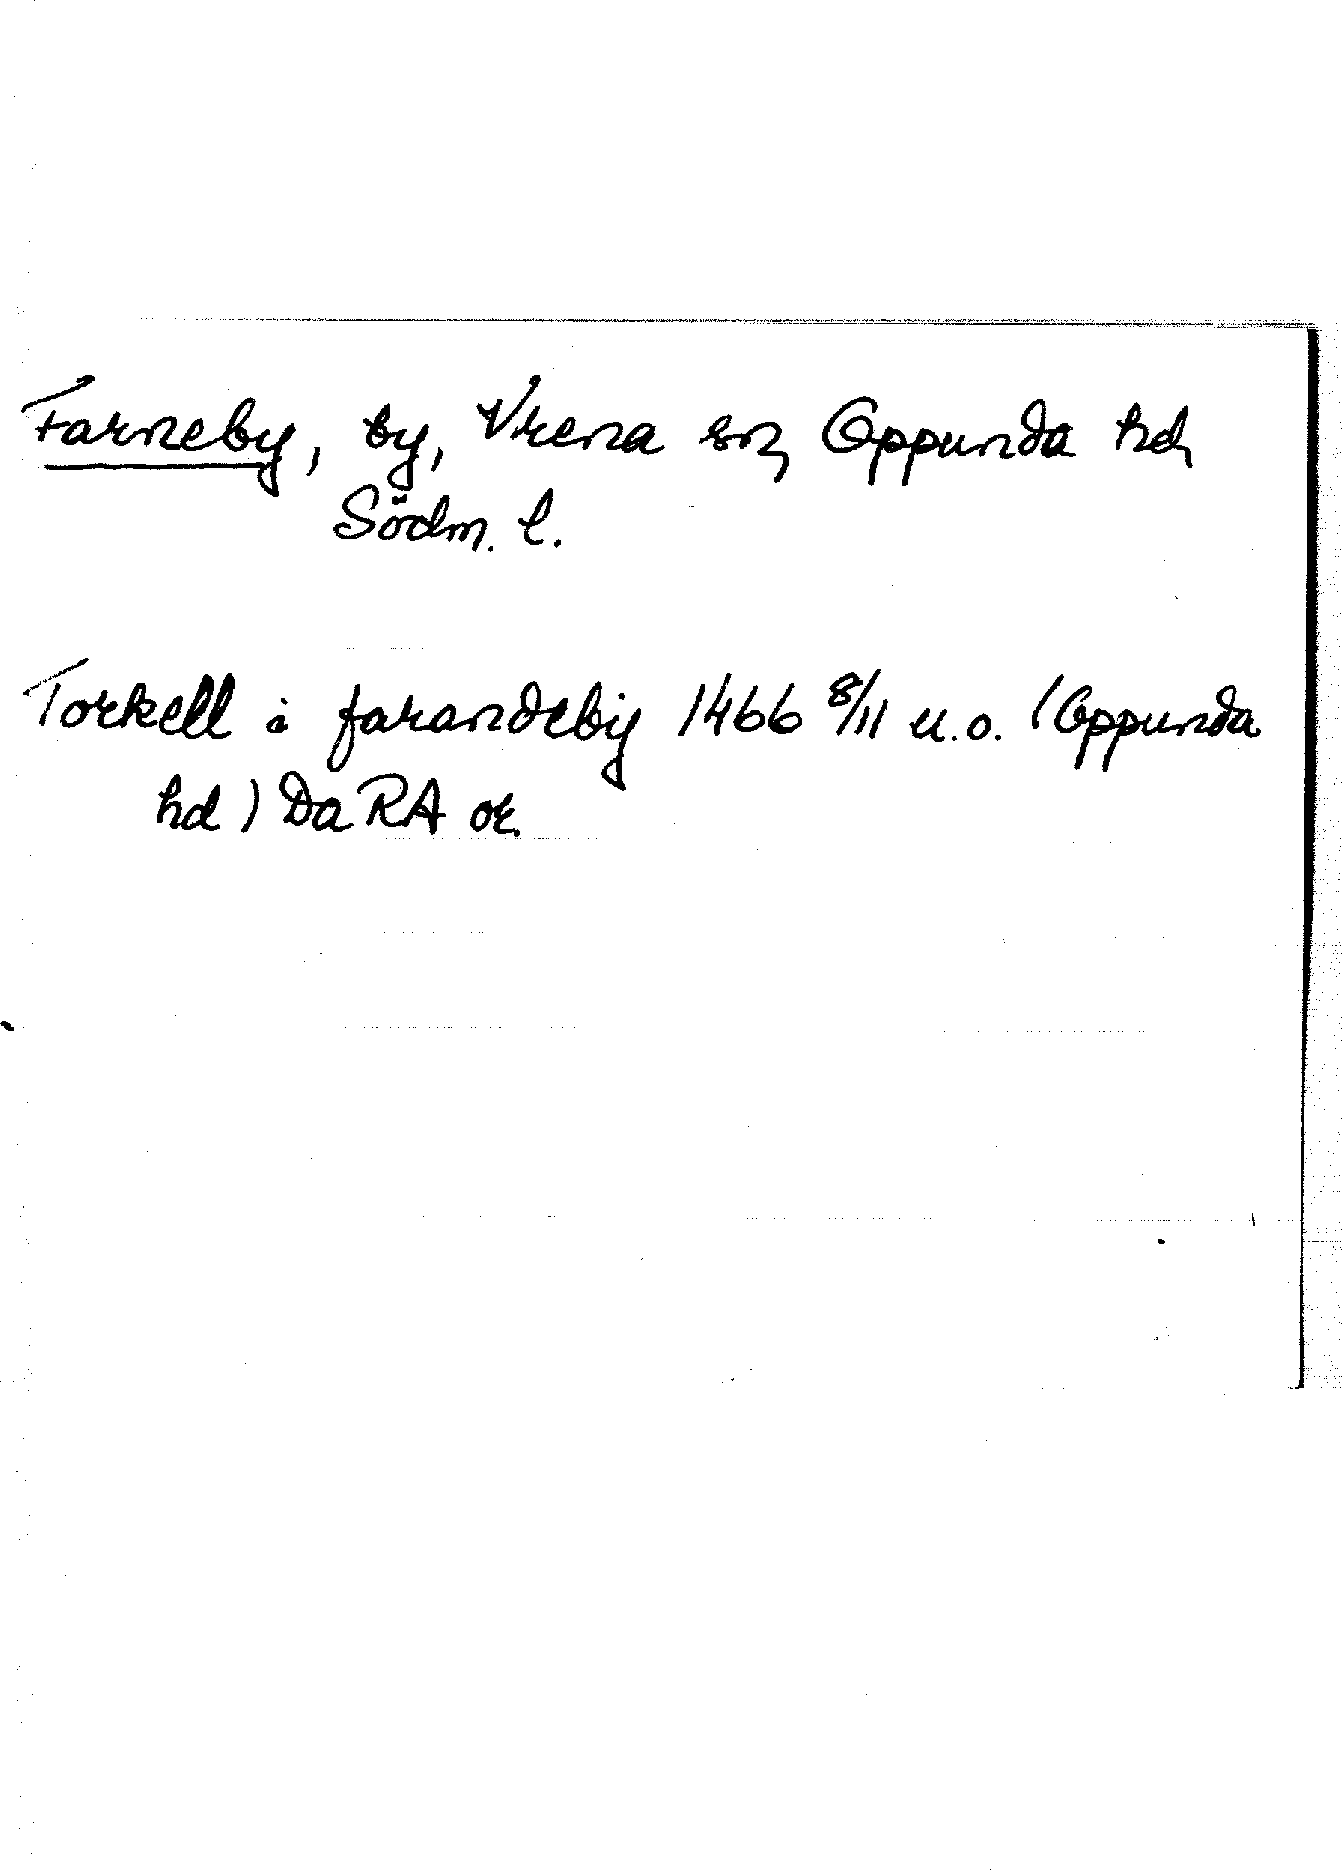 Farneby, by, Vrena sn, Oppunda hd,
Södm. l.
Torkell i farandeby 1466 8/11 u.o. (Oppunda
hd) Da RA or.